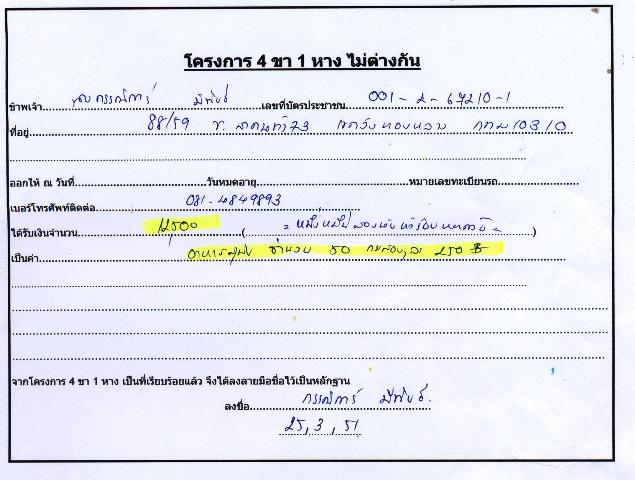 โครงการ 4 ขา 1 หาง ไม่ต่างกัน
ข้าพเจ้า กรรณิการ์ มีพันธ์ เลขที่บัตรประชาชน 001-2-67210-1
ที่อยู่ 88/59 ซ. ลาดพร้าว73 เขตวังทองหลาง กทม 10310
ออกให้ ณ วันที่ วันหมดอายุ หมายเลขทะเบียนรถ
เบอร์โทรศัพท์ติดต่อ 081-4849893
ได้รับเงินจำนวน 12,500 ( = หนึ่งหมื่นสองพันห้าร้อยบาทถ้วน = )
เป็นค่า อาหารสุนัข จำนวน 50 กระสอบๆละ 250 ฿
จากโครงการ 4 ขา 1 หาง เป็นที่เรียบร้อยแล้ว จึงได้ลงลายมือชื่อไว้เป็นหลักฐาน
ลงชื่อ กรรณิการ์ มีพันธ์
25, 3, 51